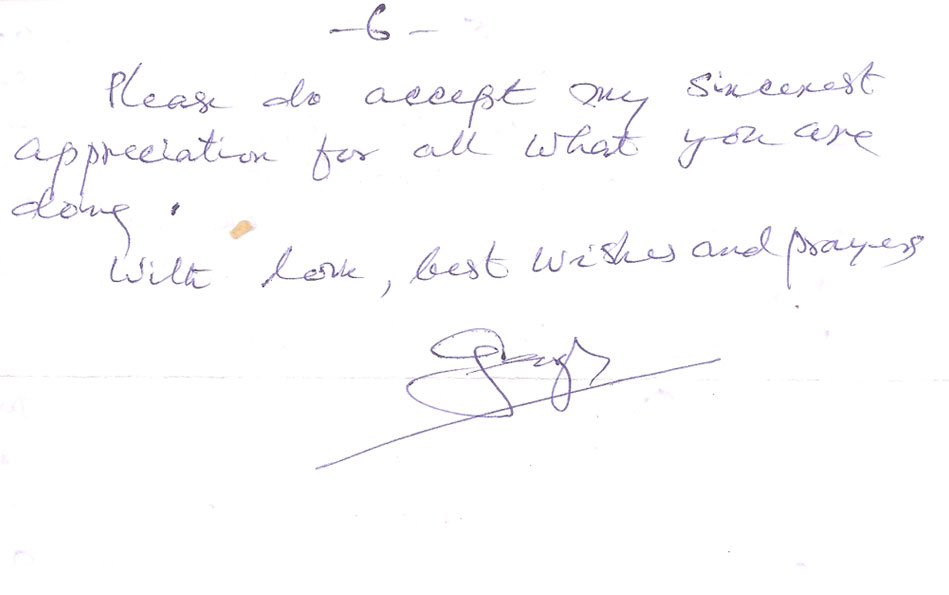 -6-
Please do accept my sincerest
appreciation for all what you are
doing.
With love, best wishes and prayers